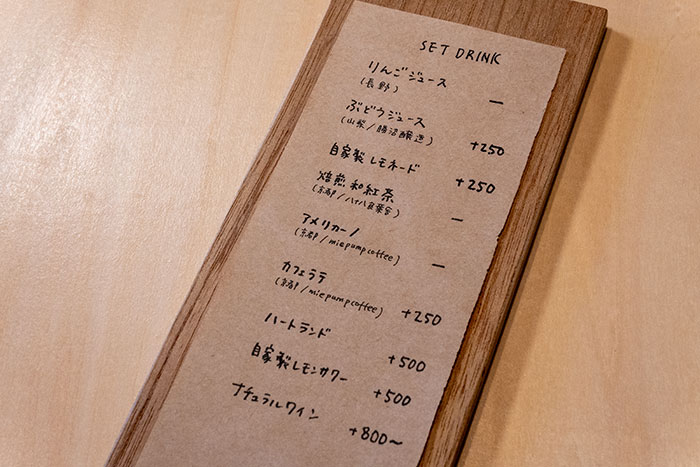 SET DRINK
りんごジュース —
(長野)
ぶどうジュース +250
(山梨/勝沼醸造)
自家製レモネード +250
焙煎和紅茶 —
(京都/八十八良葉舎)
アメリカーノ —
(京都/miepumpcoffee)
カフェラテ +250
(京都/miepumpcoffee)
ハートランド +500
自家製レモンサワー +500
ナチュラルワイン +800〜